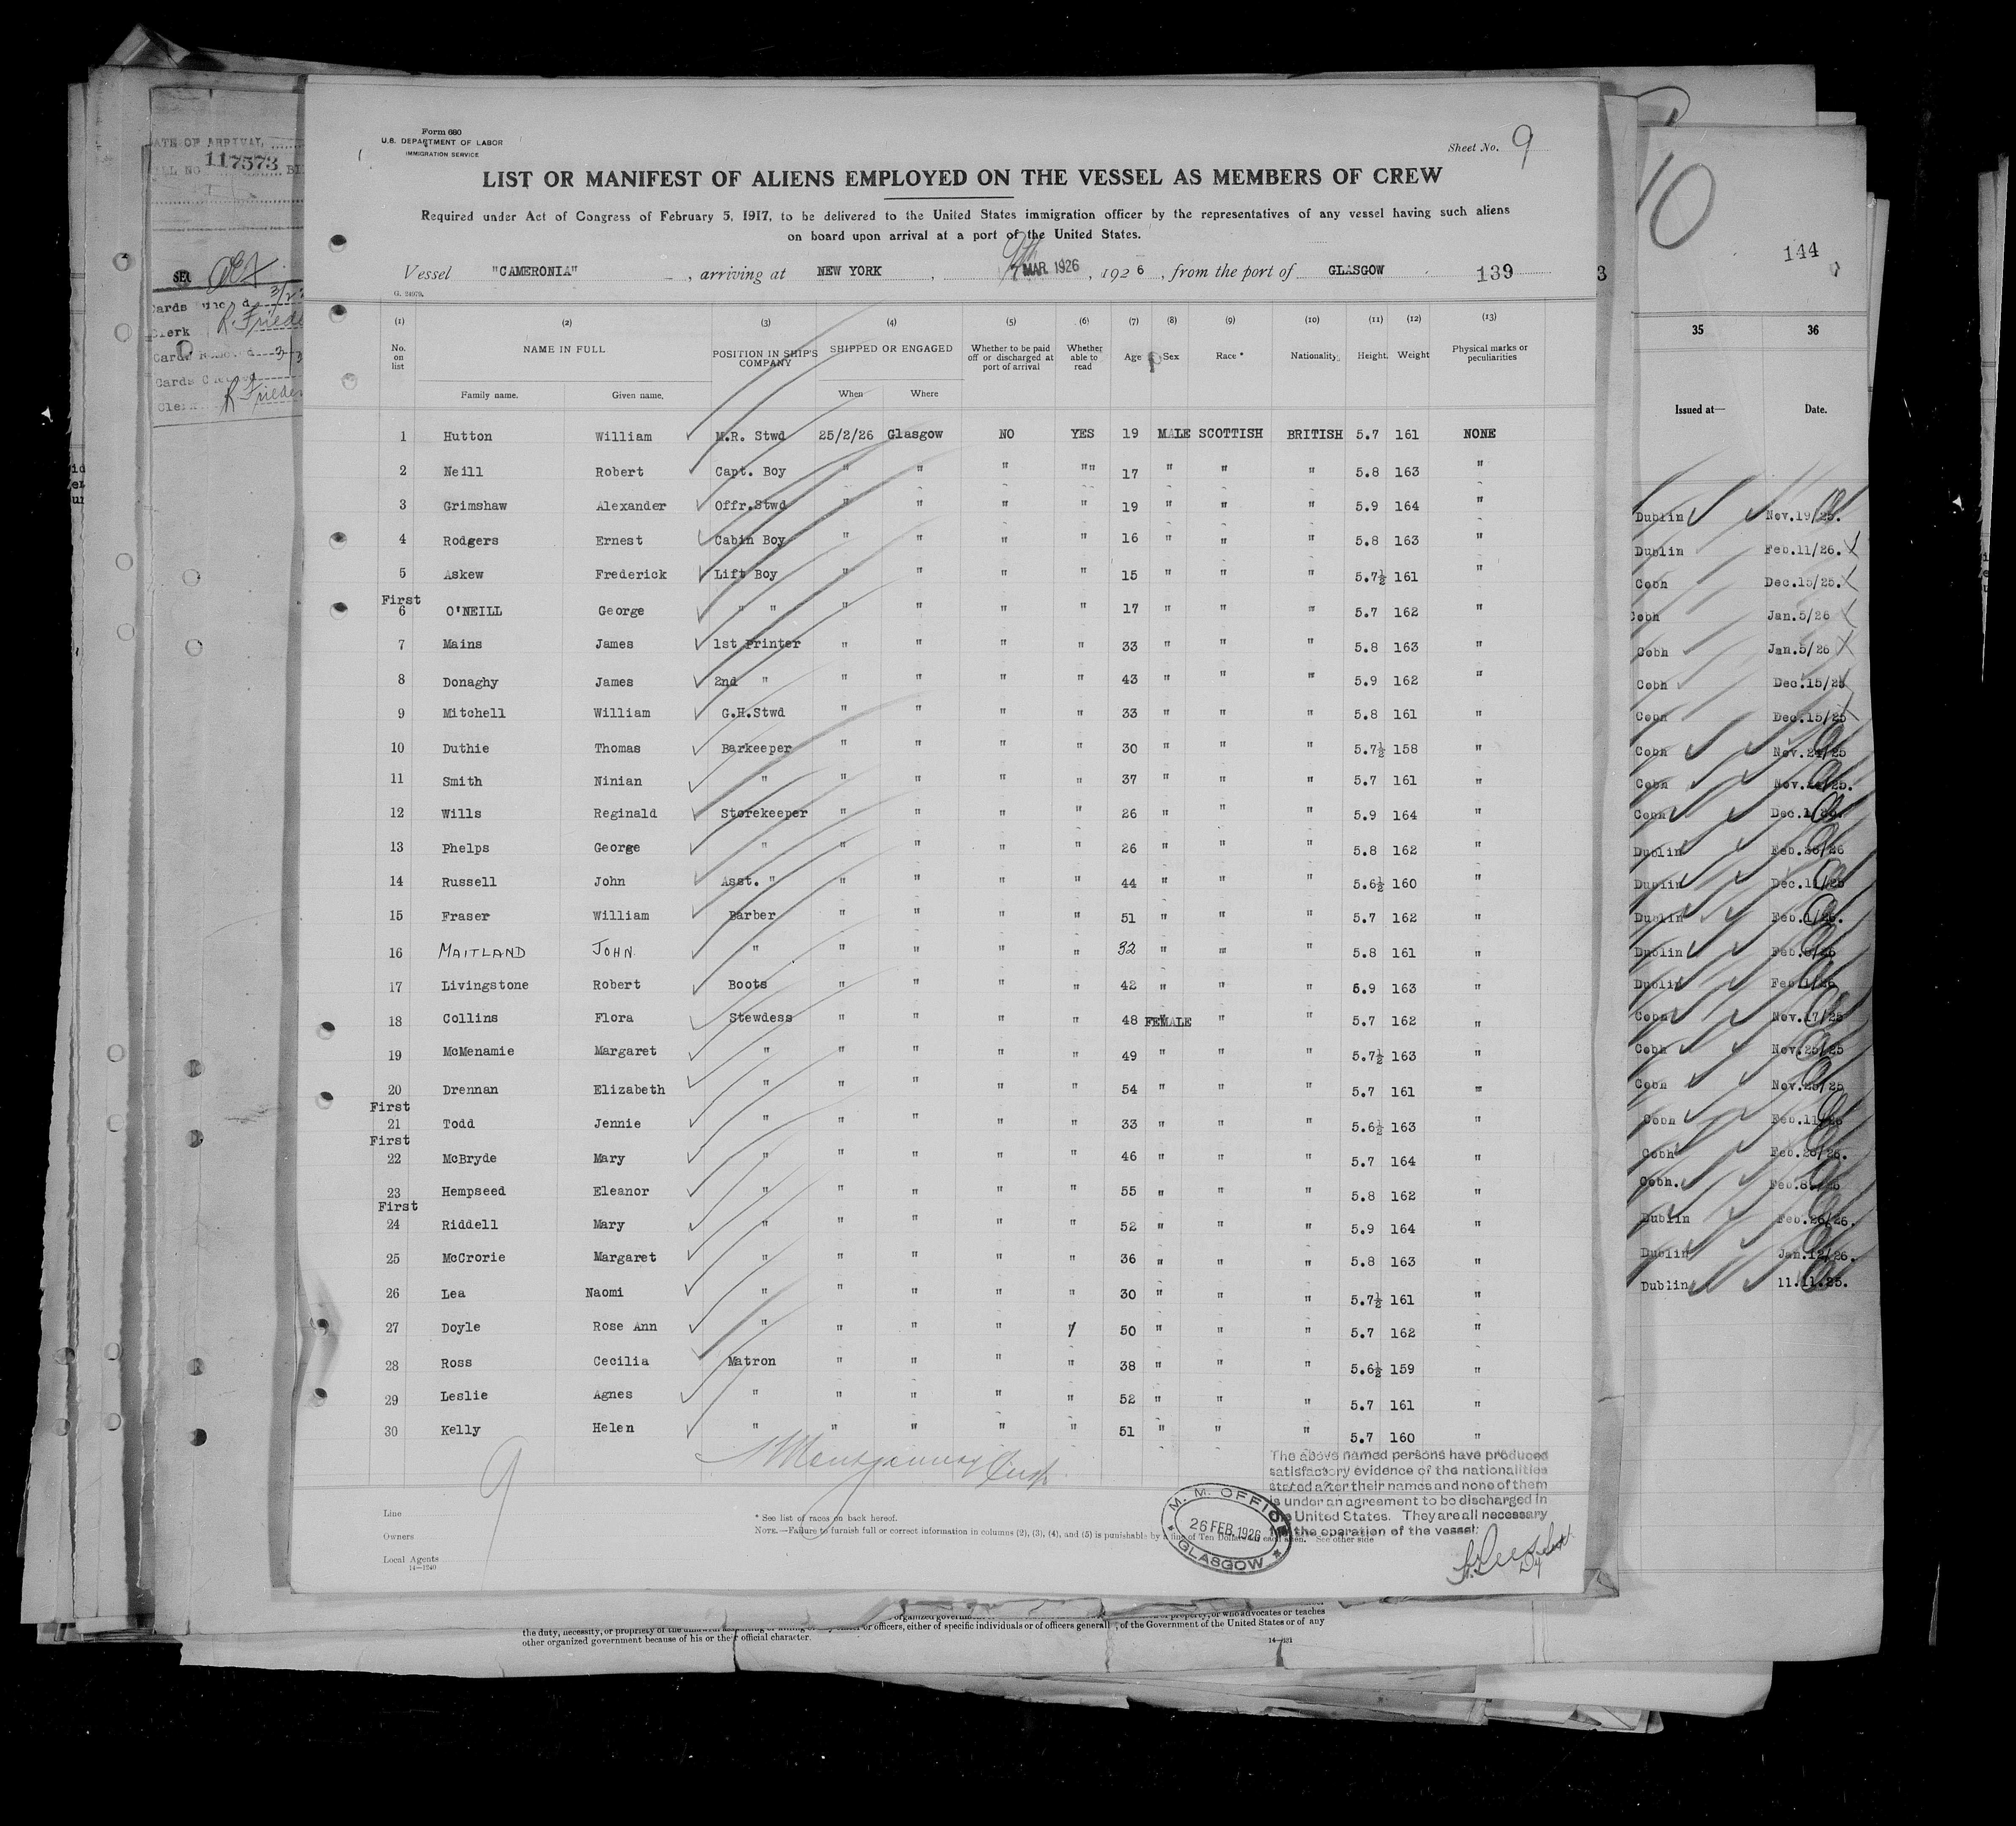 Form 680
U.S. DEPARTMENT OF LABOR
IMMIGRATION SERVICE
Sheet No. 9
LIST OR MANIFEST OF ALIENS EMPLOYED ON THE VESSEL AS MEMBERS OF CREW
Required under Act of Congress of February 5, 1917, to be delivered to the United States immigration officer by the representatives of any vessel having such aliens
on board upon arrival at a port of the United States.
Vessel "CAMERONIA" , arriving at NEW YORK , MAR 1926 , 192 6 , from the port of GLASGOW 139
G. 24979.
(1) (2) (3) (4) (5) (6) (7) (8) (9) (10) (11) (12) (13)
No. on list NAME IN FULL POSITION IN SHIP'S COMPANY SHIPPED OR ENGAGED Whether to be paid off or discharged at port of arrival Whether able to read Age Sex Race * Nationality. Height. Weight Physical marks or peculiarities
Family name. Given name. When Where
1 Hutton William M.R. Stwd 25/2/26 Glasgow NO YES 19 MALE SCOTTISH BRITISH 5.7 161 NONE
2 Neill Robert Capt. Boy " " " "" 17 " " " 5.8 163 "
3 Grimshaw Alexander Offr.Stwd " " " " 19 " " " 5.9 164 "
4 Rodgers Ernest Cabin Boy " " " " 16 " " " 5.8 163 "
5 Askew Frederick Lift Boy " " " " 15 " " " 5.7½ 161 "
First
6 O'NEILL George " " " " " " 17 " " " 5.7 162 "
7 Mains James 1st Printer " " " " 33 " " " 5.8 163 "
8 Donaghy James 2nd " " " " " 43 " " " 5.9 162 "
9 Mitchell William G.H.Stwd " " " " 33 " " " 5.8 161 "
10 Duthie Thomas Barkeeper " " " " 30 " " " 5.7½ 158 "
11 Smith Ninian " " " " " 37 " " " 5.7 161 "
12 Wills Reginald Storekeeper " " " " 26 " " " 5.9 164 "
13 Phelps George " " " " " 26 " " " 5.8 162 "
14 Russell John Asst. " " " " " 44 " " " 5.6½ 160 "
15 Fraser William Barber " " " " 51 " " " 5.7 162 "
16 MAITLAND JOHN " " " " " 32 " " " 5.8 161 "
17 Livingstone Robert Boots " " " " 42 " " " 5.9 163 "
18 Collins Flora Stewdess " " " " 48 FEMALE " " 5.7 162 "
19 McMenamie Margaret " " " " " 49 " " " 5.7½ 163 "
20 Drennan Elizabeth " " " " " 54 " " " 5.7 161 "
First
21 Todd Jennie " " " " " 33 " " " 5.6½ 163 "
First
22 McBryde Mary " " " " " 46 " " " 5.7 164 "
23 Hempseed Eleanor " " " " " 55 " " " 5.8 162 "
First
24 Riddell Mary " " " " " 52 " " " 5.9 164 "
25 McCrorie Margaret " " " " " 36 " " " 5.8 163 "
26 Lea Naomi " " " " " 30 " " " 5.7½ 161 "
27 Doyle Rose Ann " " " " " 50 " " " 5.7 162 "
28 Ross Cecilia Matron " " " " 38 " " " 5.6½ 159 "
29 Leslie Agnes " " " " " 52 " " " 5.7 161 "
30 Kelly Helen " " " " " 51 " " " 5.7 160 "
The above named persons have produced
satisfactory evidence of the nationalities
stated after their names and none of them
is under an agreement to be discharged in
the United States. They are all necessary
for the operation of the vessel.
9
M. M. OFFICE
26 FEB 1926
GLASGOW
Line
Owners
Local Agents
14—1240
* See list of races on back hereof.
NOTE.—Failure to furnish full or correct information in columns (2), (3), (4), and (5) is punishable by a fine of Ten Dollars each alien. See other side
DATE OF ARRIVAL
117573
Clerk R. Friede
Clerk R Frieder
10
144
35 36
Issued at— Date.
Dublin Nov.19/25.
Dublin Feb.11/26.
Cobh Dec.15/25.
Cobh Jan.5/26
Cobh Jan.5/26
Cobh Dec.15/25
Cobh Dec.15/25
Cobh Nov.24/25
Cobh
Cobh
Dublin Feb.26/26
Dublin Dec.11/25
Dublin Feb.1/26.
Dublin
Dublin
Cobh Nov.17/25
Cobh Nov.25/25
Cobh Nov.25/25
Cobh Feb.11/26
Cobh Feb.26/26.
Cobh.
Dublin Feb.26/26.
Dublin Jan.12/26.
Dublin 11.11.25.
the duty, necessity, or propriety of the
or officers, either of specific individuals or of officers generally, of the Government of the United States or of any
other organized government because of his or their official character.